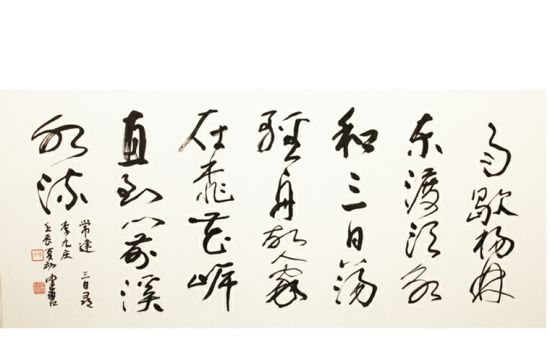 雨歇杨林
东渡头永
和三日蕩
轻舟故人家
在桃花岸
直到门前溪
水流
常建 三日尋
李九庄
辰夏初 書